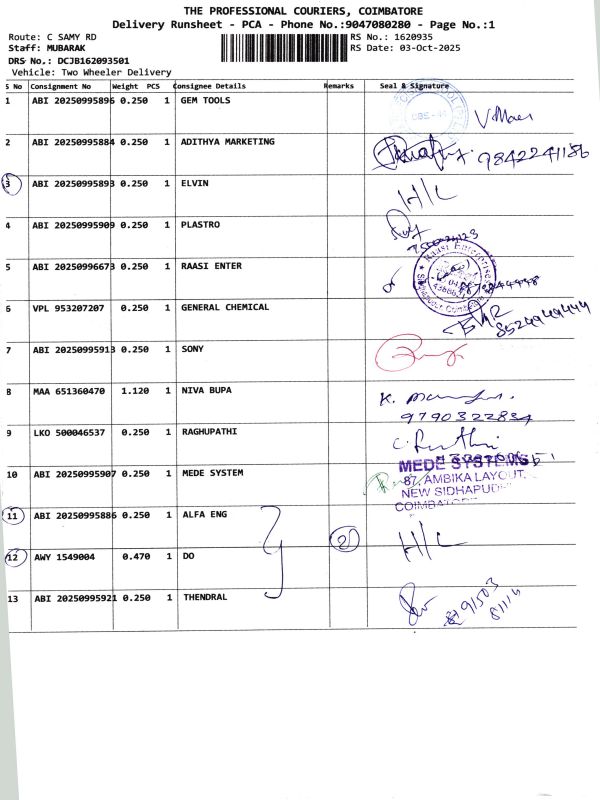 THE PROFESSIONAL COURIERS, COIMBATORE
Delivery Runsheet - PCA - Phone No.:9047080280 - Page No.:1
Route: C SAMY RD RS No.: 1620935
Staff: MUBARAK RS Date: 03-Oct-2025
DRS No.: DCJB162093501
Vehicle: Two Wheeler Delivery
S No Consignment No Weight PCS Consignee Details Remarks Seal & Signature
1 ABI 20250995896 0.250 1 GEM TOOLS
2 ABI 20250995884 0.250 1 ADITHYA MARKETING 9842241186
3 ABI 20250995893 0.250 1 ELVIN H/L
4 ABI 20250995909 0.250 1 PLASTRO
5 ABI 20250996673 0.250 1 RAASI ENTER Raasi Enterprises
6 VPL 953207207 0.250 1 GENERAL CHEMICAL 8524949444
7 ABI 20250995913 0.250 1 SONY
8 MAA 651360470 1.120 1 NIVA BUPA K.
9790322834
9 LKO 500046537 0.250 1 RAGHUPATHI
10 ABI 20250995907 0.250 1 MEDE SYSTEM MEDE SYSTEMS
87, AMBIKA LAYOUT,
NEW SIDHAPUDUR
11 ABI 20250995886 0.250 1 ALFA ENG
12 AWY 1549004 0.470 1 DO 2 H/L
13 ABI 20250995921 0.250 1 THENDRAL